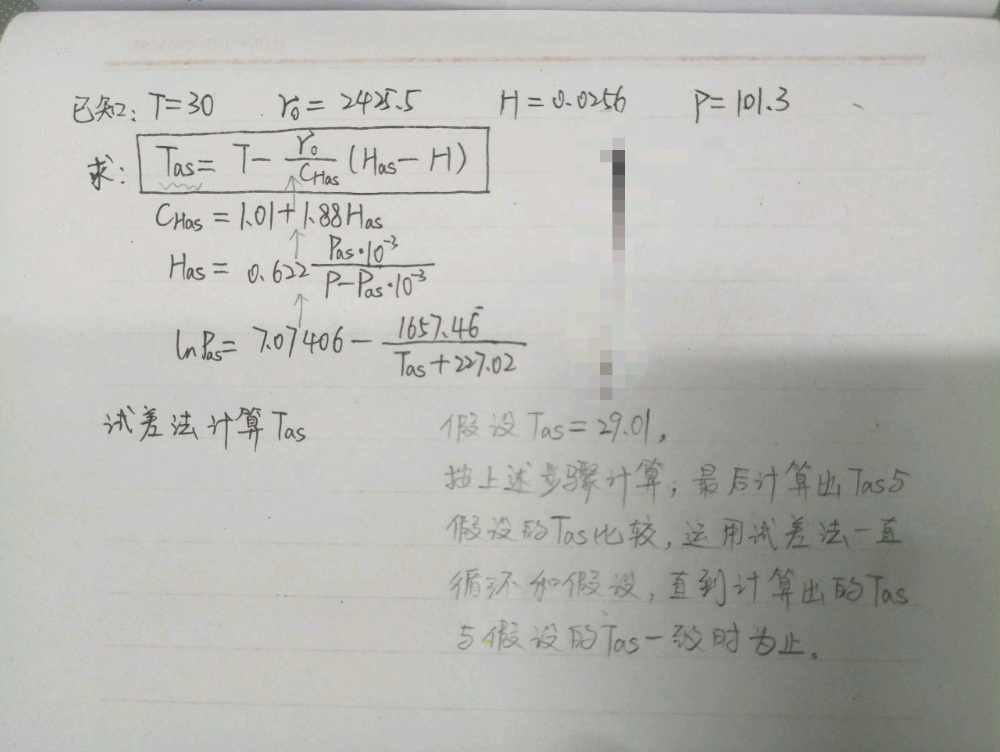 已知: T=30 r₀=2425.5 H=0.0256 P=101.3
求: Tas= T-r₀/CHas(Has-H)
CHas=1.01+1.88Has
Has=0.622 Pas·10⁻³/P-Pas·10⁻³
lnPas=7.07406-1657.46/Tas+227.02
试差法计算Tas
假设Tas=29.01,
按上述步骤计算,最后计算出Tas与
假设的Tas比较,运用试差法一直
循环和假设,直到计算出的Tas
与假设的Tas一致时为止。